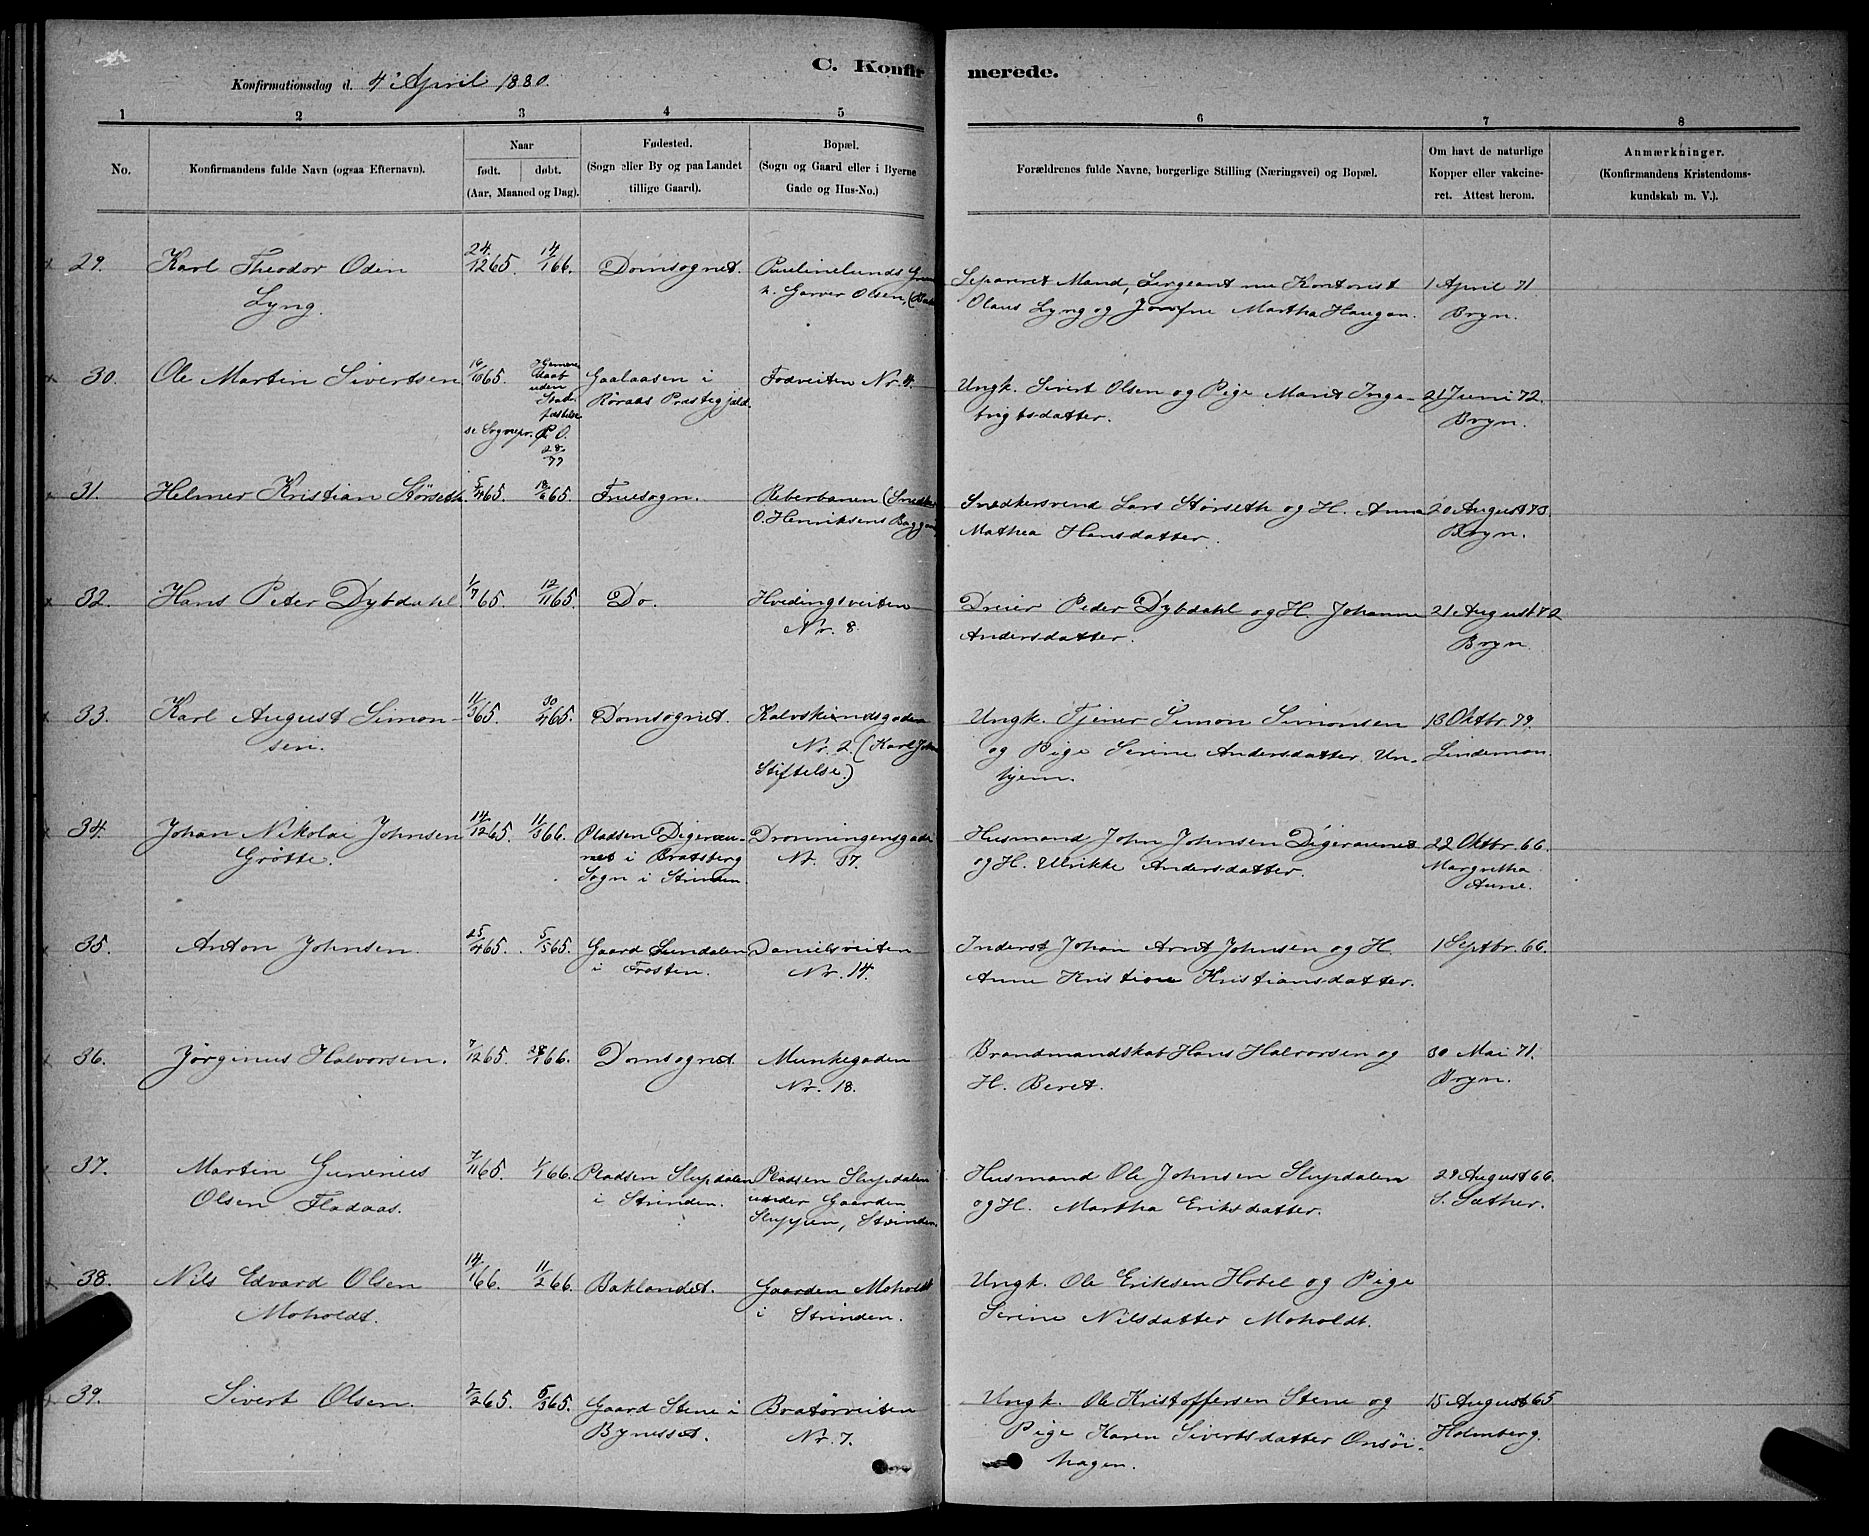 C. Konfirmerede.
Konfirmationsdag d. 4' April 1880.
1 2 3 4 5 6 7 8
No.
Konfirmandens fulde Navn (ogsaa Efternavn).
Naar
født. døbt.
(Aar, Maaned og Dag).
Fødested.
(Sogn eller By og paa Landet
tillige Gaard).
Bopæl.
(Sogn og Gaard eller i Byerne
Gade og Hus-No.)
Forældrenes fulde Navne, borgerlige Stilling (Næringsvei) og Bopæl.
Om havt de naturlige
Kopper eller vakcine-
ret. Attest herom.
Anmærkninger.
(Konfirmandens Kristendoms-
kundskab m. V.).
29. Karl Theodor Odin
Lyng.
24/12 65. 14/1 66.
Domsognet.
Paulinelunds
h. Garver Olsen,
Separeret Mand, Sergeant nu Kontorist
Olaus Lyng og Josefne Martha Haugan.
1 April 71
Bryn.
30. Ole Martin Sivertsen
65.
uden
se Sognepr. P. O.
28/77
Gaalaasen i
Røraas Præstegjæld.
Fodveiten Nr. 4.
Ungk. Sivert Olsen og Pige Marit Inge-
brigtsdatter.
21 Juni 72.
Bryn.
31. Helmer Kristian Størseth
5/4 65. 18/6 65.
Fruesogn.
Reberbanen (Snedker
O. Henriksens Baggaard
Snedkersvend Lars Størseth og H. Anna
Mathea Hansdatter.
20 August 73.
Bryn.
32. Hans Peter Dybdahl
1/7 65. 12/11 65.
Do.
Hvedingsveiten
Nr. 8.
Dreier Peder Dybdahl og H. Johanne
Andersdatter.
21 August 72
Bryn.
33. Karl August Simon-
sen.
11/3 65. 30/4 65.
Domsognet.
Kalvskindsgaden
Nr. 2 (Karl Johns
Stiftelse.)
Ungk. Tjener Simon Simonsen
og Pige Serine Andersdatter Un-
hjem.
13 Oktbr. 79.
Lindeman.
34. Johan Nikolai Johnsen
Grötte.
14/12 65. 11/3 66.
Pladsen Digerau-
net i Bratsberg
Sogn i Strinden.
Dronningensgade
Nr. 17.
Husmand John Johnsen Digeraunet
og H. Ulrikke Andersdatter.
22 Oktbr. 66.
Margretha
Aune.
35. Anton Johnsen.
25/4 65. 5/5 65.
Gaard Sundalen
i Frosten.
Danielsveiten
Nr. 14.
Inderst Johan Arnt Johnsen og H.
Anne Kristine Kristiansdatter.
1 Septbr. 66.
36. Jørginus Halvorsen.
7/12 65. 28/1 66.
Domsognet.
Munkegaden
Nr. 18.
Brandmandskab Hans Halvorsen og
H. Beret.
30 Mai 71.
Bryn.
37. Martin Gunerius
Olsen Fladaas.
7/11 65. 1/1 66.
Pladsen Slupdalen
i Strinden.
Pladsen Slupdalen
under Gaarden
Sluppen, Strinden.
Husmand Ole Johnsen Slupdalen
og H. Martha Eriksdatter.
29 August 66.
S. Sæther.
38. Nils Edvard Olsen
Moholdt.
14/1 66. 11/2 66.
Baklandet.
Gaarden Moholdt
i Strinden.
Ungk. Ole Eriksen Hobel og Pige
Serine Nilsdatter Moholdt.
39. Sivert Olsen.
2/2 65. 5/3 65.
Gaard Stene i
Bynesset.
Bratørveiten
Nr. 7.
Ungk. Ole Kristoffersen Stene og
Pige Karen Sivertsdatter Onsøi-
hagen.
15 August 65
Holmberg.